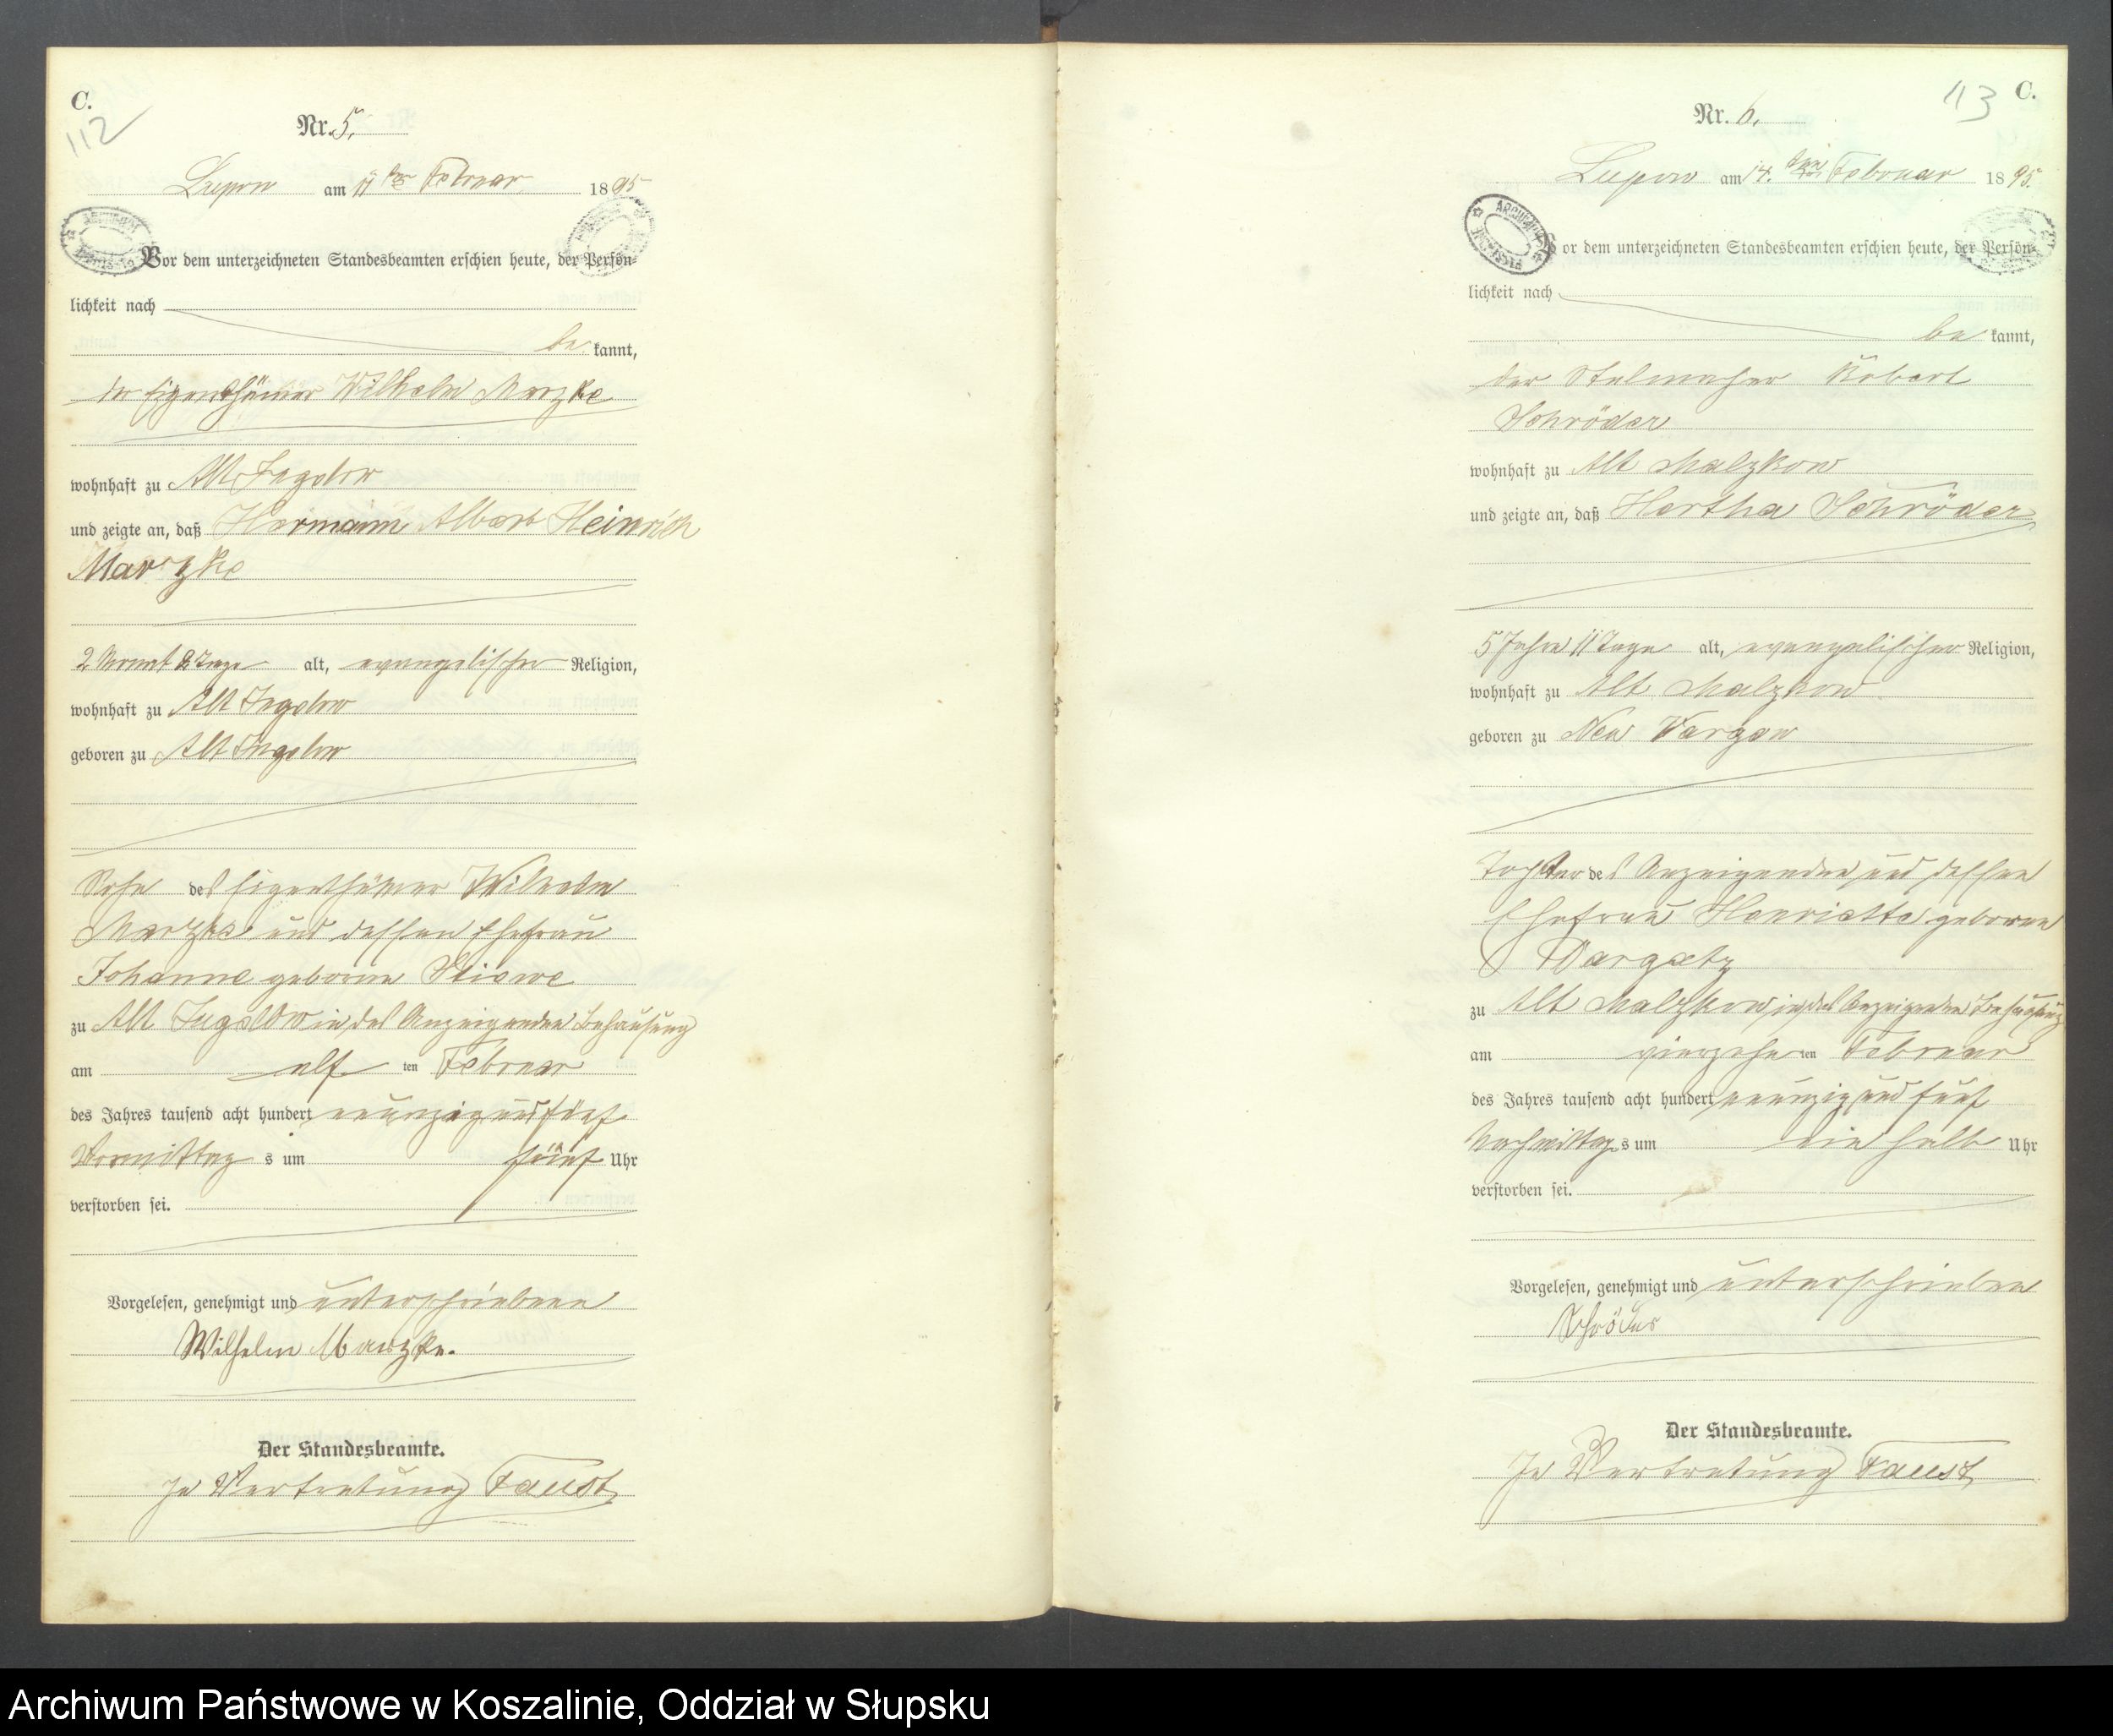 C.
112
Nr. 5.
Lupow am 11ten Februar 1895
Vor dem unterzeichneten Standesbeamten erschien heute, der Persön-
lichkeit nach
be kannt,
der Eigenthümer Wilhelm Marzke
wohnhaft zu Alt Jugelow
und zeigte an, daß Hermann Albert Heinrich
Marzke
2 Monat 2 Tage alt, evangelischer Religion,
wohnhaft zu Alt Jugelow
geboren zu Alt Jugelow
Sohn des Eigenthümer Wilhelm
Marzke und dessen Ehefrau
Johanne geborne
zu Alt Jugelow in des Anzeigenden Behausung
am elf ten Februar
des Jahres tausend acht hundert neunzig und fünf
Vormittag s um fünf Uhr
verstorben sei.
Vorgelesen, genehmigt und unterschrieben
Wilhelm Marzke.
Der Standesbeamte.
In Vertretung Faust
113
C.
Nr. 6.
Lupow am 14. ten Februar 1895.
Vor dem unterzeichneten Standesbeamten erschien heute, der Persön-
lichkeit nach
be kannt,
der Stelmacher Robert
Schröder
wohnhaft zu Alt Malzkow
und zeigte an, daß Hertha Schröder
5 Jahre 11 Tage alt, evangelischer Religion,
wohnhaft zu Alt Malzkow
geboren zu Neu Wargow
Tochter des Anzeigenden und dessen
Ehefrau Henriette geborene
Dargatz
zu Alt Malzkow in des Anzeigenden Behausung
am vierzehn ten Februar
des Jahres tausend acht hundert neunzig und fünf
Nachmittag s um ein halb Uhr
verstorben sei.
Vorgelesen, genehmigt und unterschrieben
Schröder
Der Standesbeamte.
In Vertretung Faust
Archiwum Państwowe w Koszalinie, Oddział w Słupsku